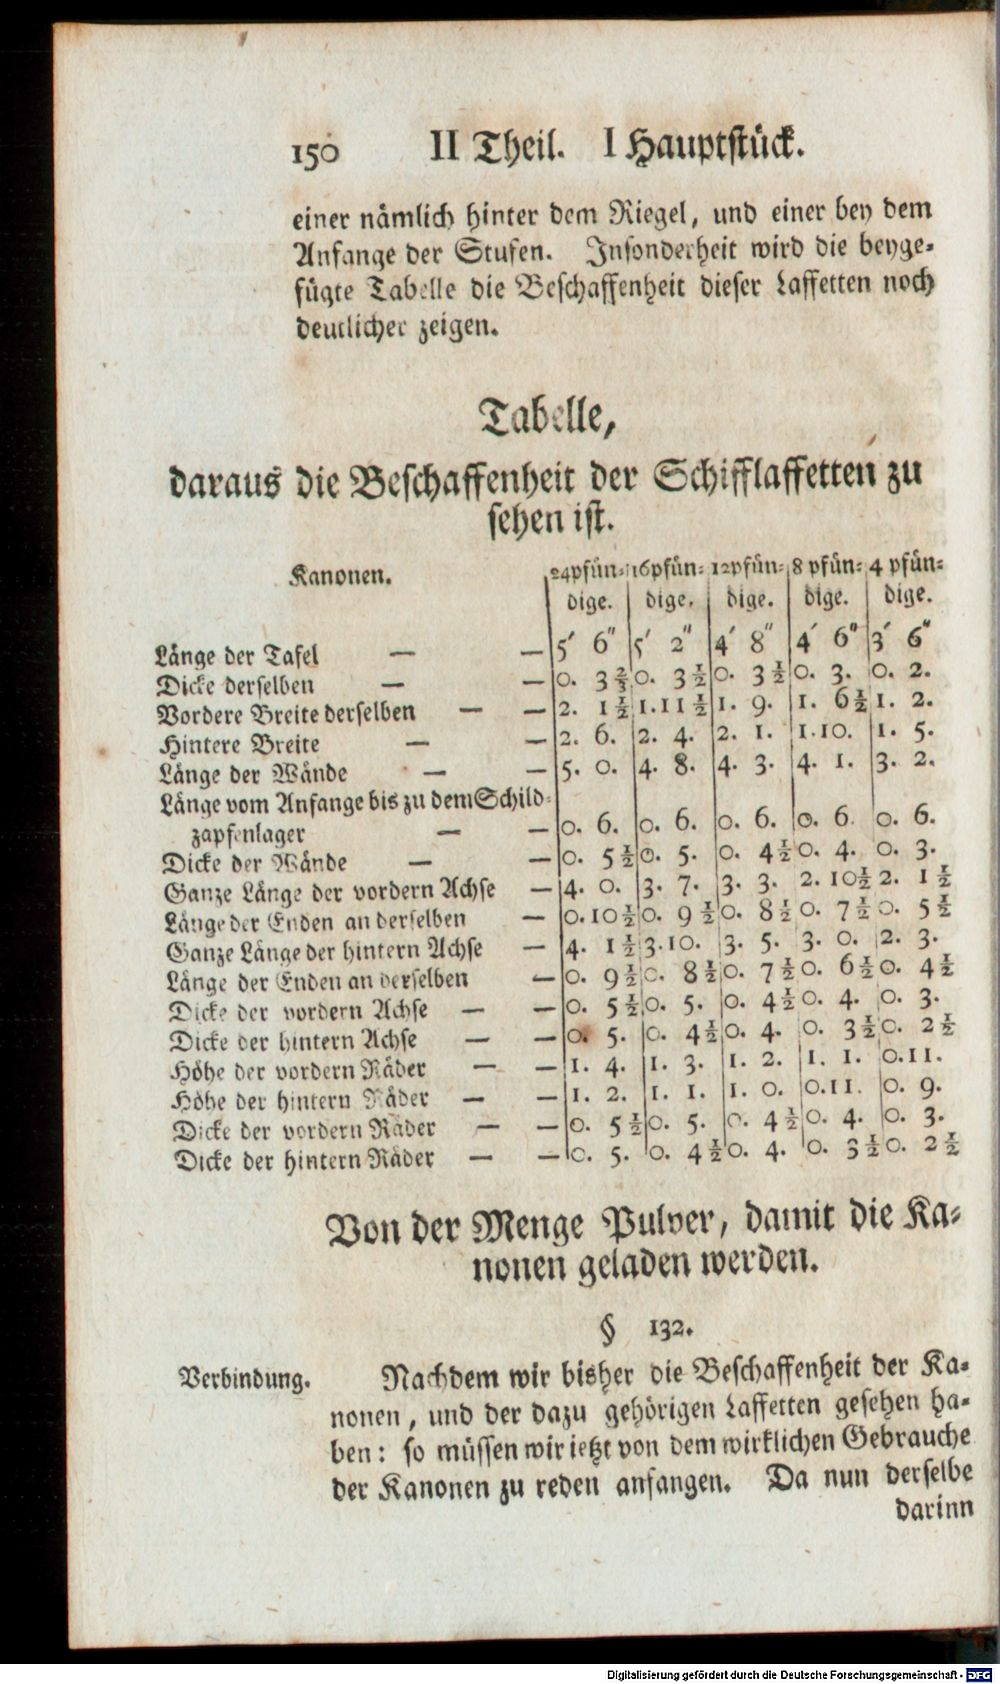 150 II Theil. I Hauptstück.
einer nämlich hinter dem Riegel, und einer bey dem
Anfange der Stufen. Insonderheit wird die beyge-
fügte Tabelle die Beschaffenheit dieser Laffetten noch
deutlicher zeigen.
Tabelle,
daraus die Beschaffenheit der Schifflaffetten zu
sehen ist.
Kanonen. 24pfün- 16pfün- 12pfün- 8 pfün- 4 pfün-
dige. dige. dige. dige. dige.
Länge der Tafel — — 5′ 6″ 5′ 2″ 4′ 8″ 4′ 6″ 3′ 6″
Dicke derselben — — 0. 3⅔ 0. 3½ 0. 3½ 0. 3. 0. 2.
Vordere Breite derselben — — 2. 1½ 1.11½ 1. 9. 1. 6½ 1. 2.
Hintere Breite — — 2. 6. 2. 4. 2. 1. 1.10. 1. 5.
Länge der Wände — — 5. 0. 4. 8. 4. 3. 4. 1. 3. 2.
Länge vom Anfange bis zu dem Schild-
zapfenlager — — 0. 6. 0. 6. 0. 6. 0. 6 0. 6.
Dicke der Wände — — 0. 5½ 0. 5. 0. 4½ 0. 4. 0. 3.
Ganze Länge der vordern Achse — 4. 0. 3. 7. 3. 3. 2. 10½ 2. 1½
Länge der Enden an derselben — 0.10½ 0. 9½ 0. 8½ 0. 7½ 0. 5½
Ganze Länge der hintern Achse — 4. 1½ 3.10. 3. 5. 3. 0. 2. 3.
Länge der Enden an derselben — 0. 9½ 0. 8½ 0. 7½ 0. 6½ 0. 4½
Dicke der vordern Achse — — 0. 5½ 0. 5. 0. 4½ 0. 4. 0. 3.
Dicke der hintern Achse — — 0. 5. 0. 4½ 0. 4. 0. 3½ 0. 2½
Höhe der vordern Räder — — 1. 4. 1. 3. 1. 2. 1. 1. 0.11.
Höhe der hintern Räder — — 1. 2. 1. 1. 1. 0. 0.11. 0. 9.
Dicke der vordern Räder — — 0. 5½ 0. 5. 0. 4½ 0. 4. 0. 3.
Dicke der hintern Räder — — 0. 5. 0. 4½ 0. 4. 0. 3½ 0. 2½
Von der Menge Pulver, damit die Ka-
nonen geladen werden.
§ 132.
Verbindung. Nachdem wir bisher die Beschaffenheit der Ka-
nonen, und der dazu gehörigen Laffetten gesehen ha-
ben: so müssen wir ietzt von dem wirklichen Gebrauche
der Kanonen zu reden anfangen. Da nun derselbe
darinn
Digitalisierung gefördert durch die Deutsche Forschungsgemeinschaft - DFG